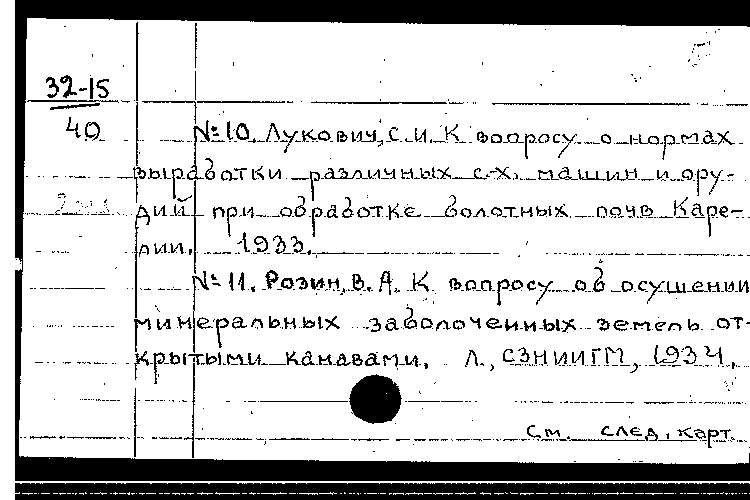 32-15
40
№ 10. Лукович, С. И. К вопросу о нормах
выработки различных с-х. машин и ору-
дий при обработке болотных почв Каре-
лии. 1933.
№ 11. Розин, В. А. К вопросу об осушении
минеральных заболоченных земель от-
крытыми канавами. Л., СЗНИИГМ, 1934.
См. след. карт.